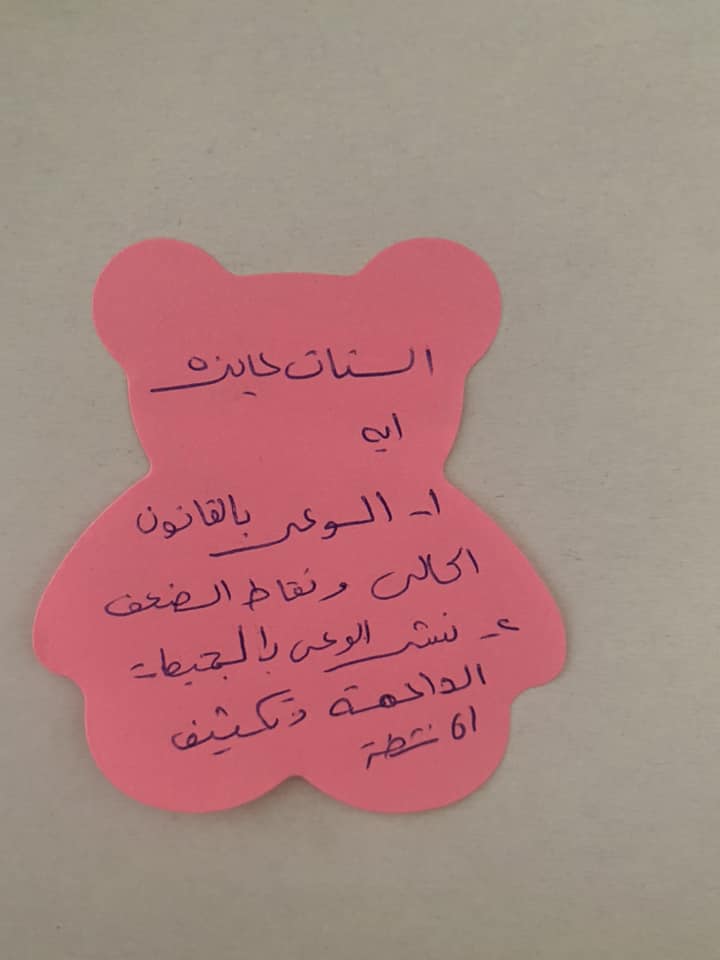 الستات عايزه
ايه
١- الوعى بالقانون
الحالى ونقاط الضعف
٢- نشر الوعى بالجمعيات
الداعمة وتكثيف
الانشطة